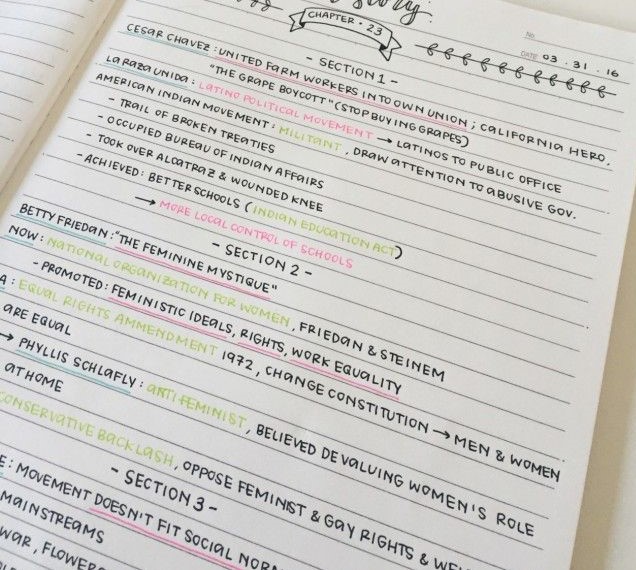 story
CHAPTER • 23
No.
DATE 03 . 31 . 16
- SECTION 1 -
CESAR CHAVEZ : UNITED FARM WORKERS INTO OWN UNION ; CALIFORNIA HERO.
"THE GRAPE BOYCOTT" (STOP BUYING GRAPES)
LA RAZA UNIDA : LATINO POLITICAL MOVEMENT → LATINOS TO PUBLIC OFFICE
AMERICAN INDIAN MOVEMENT : MILITANT, DRAW ATTENTION TO ABUSIVE GOV.
- TRAIL OF BROKEN TREATIES
- OCCUPIED BUREAU OF INDIAN AFFAIRS
- TOOK OVER ALCATRAZ & WOUNDED KNEE
- ACHIEVED : BETTER SCHOOLS (INDIAN EDUCATION ACT)
→ MORE LOCAL CONTROL OF SCHOOLS
- SECTION 2 -
BETTY FRIEDAN : "THE FEMININE MYSTIQUE"
NOW : NATIONAL ORGANIZATION FOR WOMEN, FRIEDAN & STEINEM
- PROMOTED : FEMINISTIC IDEALS, RIGHTS, WORK EQUALITY
A : EQUAL RIGHTS AMMENDMENT 1972, CHANGE CONSTITUTION → MEN & WOMEN
ARE EQUAL
→ PHYLLIS SCHLAFLY : ANTIFEMINIST, BELIEVED DEVALUING WOMEN'S ROLE
AT HOME
CONSERVATIVE BACKLASH, OPPOSE FEMINIST & GAY RIGHTS & WEL
- SECTION 3 -
E : MOVEMENT DOESN'T FIT SOCIAL NORM
MAINSTREAMS
WAR, FLOWER